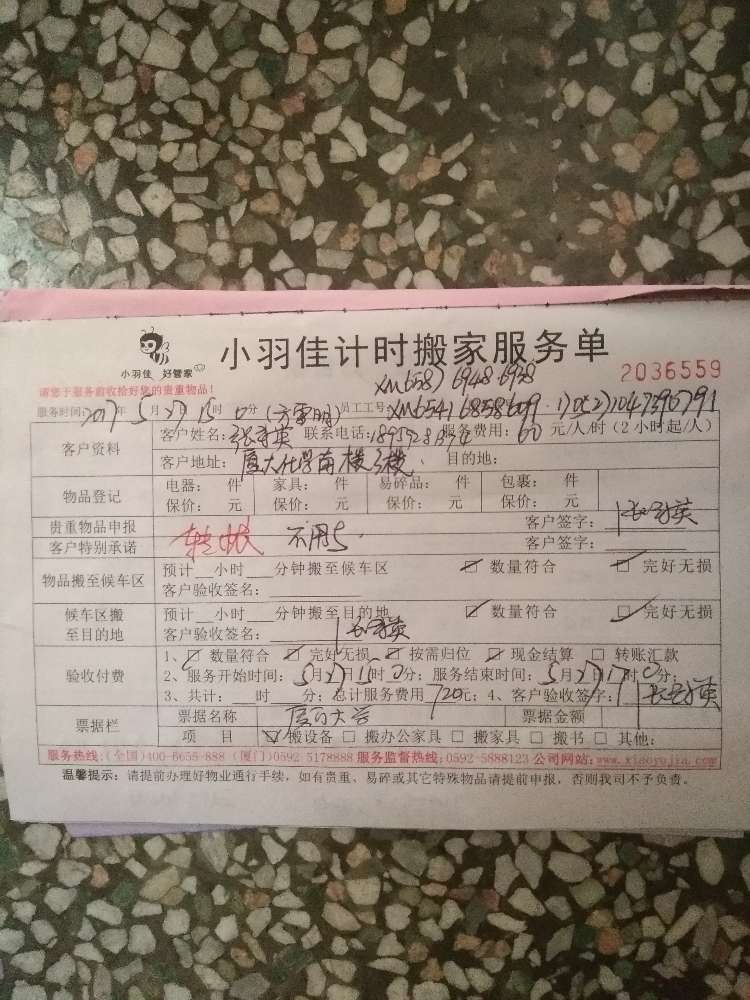 小羽佳 好管家
小羽佳计时搬家服务单
2036559
请您于服务前收拾好您的贵重物品！
XM6587 6948 6938
服务时间：2017年5月27日15时0分(方雷明) 员工工号：XM6541 6858 6609
客户资料
客户姓名：张 英 联系电话： 服务费用：60元/人/时(2小时起/人)
客户地址：厦大化学南楼 楼、 目的地：
物品登记
电器： 件 家具： 件 易碎品： 件 包裹： 件
保价： 元 保价： 元 保价： 元 保价： 元
贵重物品申报
客户签字：
客户特别承诺
转帐 不用
客户签字：
物品搬至候车区
预计__小时___分钟搬至候车区 ☑ 数量符合 ☑ 完好无损
客户验收签名：
候车区搬
至目的地
预计__小时___分钟搬至目的地 ☑ 数量符合 ☑ 完好无损
客户验收签名：
验收付费
1、☑ 数量符合 ☑ 完好无损 ☑ 按需归位 ☑ 现金结算 □ 转账汇款
2、服务开始时间：5月27日15时0分；服务结束时间：5月27日17时0分；
3、共计：___时___分；总计服务费用720元；4、客户验收签字：
票据栏
票据名称 厦门大学 票据金额
项 目 ☑ 搬设备 □ 搬办公家具 □ 搬家具 □ 搬书 □ 其他：
服务热线：(全国)400-6655-888 (厦门)0592-5178888 服务监督热线：0592-5888123 公司网站：www.xiaoyujia.com
温馨提示：请提前办理好物业通行手续，如有贵重、易碎或其它特殊物品请提前申报，否则我司不予负责。